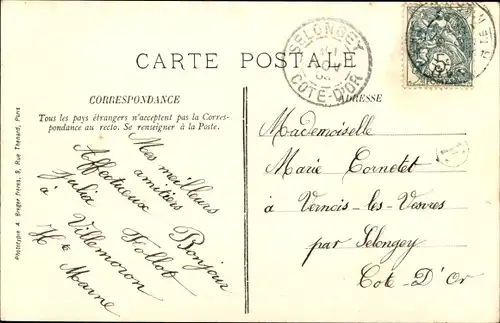 CARTE POSTALE
SELONGEY
CÔTE-D'OR
CORRESPONDANCE
Tous les pays étrangers n'acceptent pas la Corres-
pondance au recto. Se renseigner à la Poste.
ADRESSE
Mes meilleurs
amitiés Bonjour
Affectueux
Julia Follot
à Villemoron
Hte Marne
Mademoiselle
Marie Cornetet
à Vernois-les-Vesvres
par Selongey
Côte-D'Or
Phototypie A. Breger frères, 9, Rue Thénard, Paris